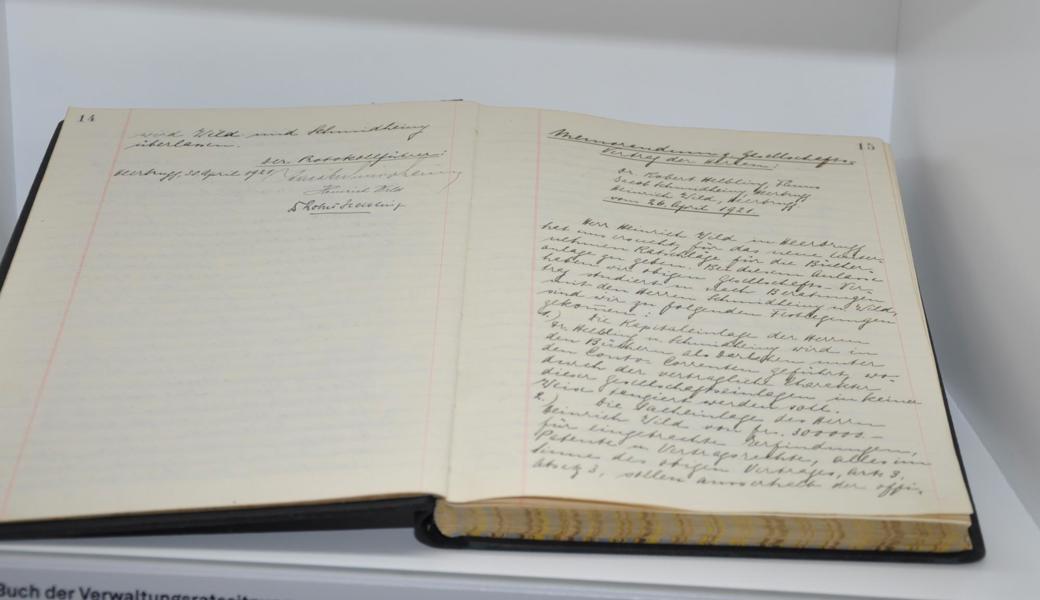 14
wird Wild und Schmidheiny
überlassen.
Der Protokollführer:
Heerbrugg, 30 April 1921
Heinrich Wild
15
Memorandum z. Gesellschafts-
Vertrag der Herren:
Dr. Robert Helbling, Flums
Jacob Schmidheiny, Heerbrugg
Heinrich Wild, Heerbrugg
vom 26 April 1921.
Herr Heinrich Wild in Heerbrugg
hat uns ersucht für das neue Unter-
nehmen Ratschläge für die Bücher-
anlage zu geben. Bei diesem Anlasse
haben wir obigen Gesellschafts-Ver-
trag studiert u. nach Beratungen
mit den Herren Schmidheiny u. Wild,
sind wir zu folgenden Festlegungen
gekommen:
1.) Die Kapitaleinlage der Herren
Dr. Helbling u. Schmidheiny wird in
den Büchern als Darlehen unter
den Conto-Correnten geführt, wo-
durch der vertragliche Charakter
dieser Gesellschaftseinlagen in keiner
Weise tangiert werden soll.
2.) Die Sacheinlage des Herrn
Heinrich Wild von frs. 300000.–
für eingebrachte Erfindungen,
Patente u. Vertragsrechte, alles im
Sinne des obigen Vertrages, Art. 3,
Absatz 3, sollen ausserhalb der offi-
Buch der